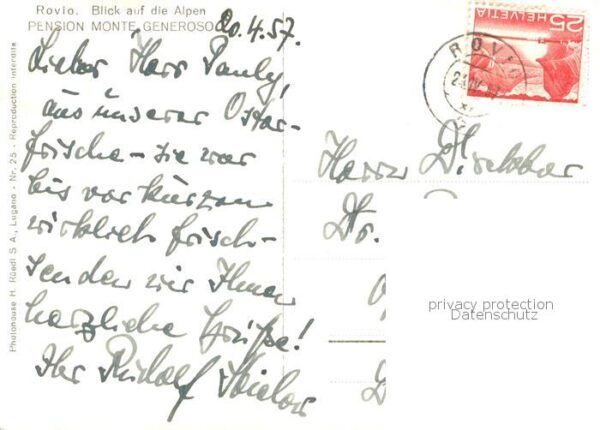 Rovio. Blick auf die Alpen
PENSION MONTE GENEROSO
20.4.57.
Lieber Herr Pauly,
aus unserer Oster-
frische – sie war
bis vor kurzem
wirklich frisch –
senden wir Ihnen
herzliche Grüße!
Ihr Rudolf
Photohouse H. Rüedi S A., Lugano - Nr. 25 - Reproduction interdite
HELVETIA 25
ROVIO
Herrn Direktor
Dr.
privacy protection
Datenschutz